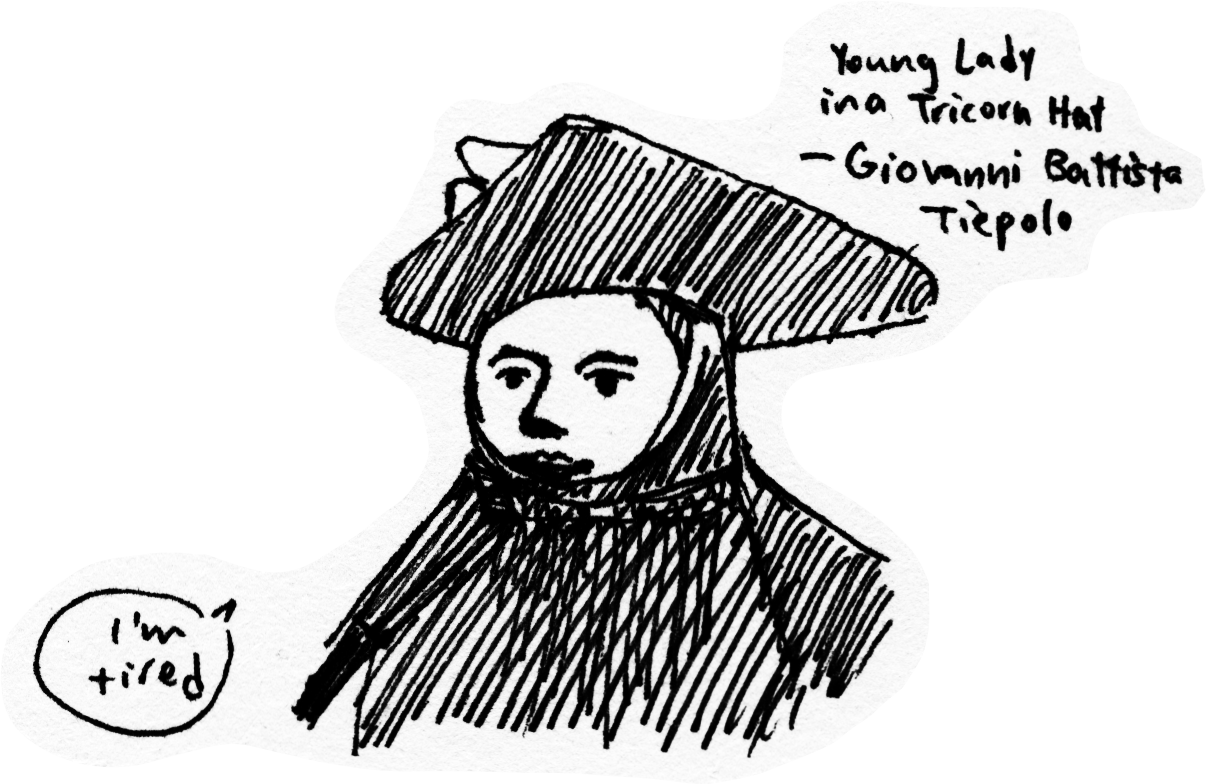 Young Lady
in a Tricorn Hat
— Giovanni Battista
Tiepolo
I'm
tired